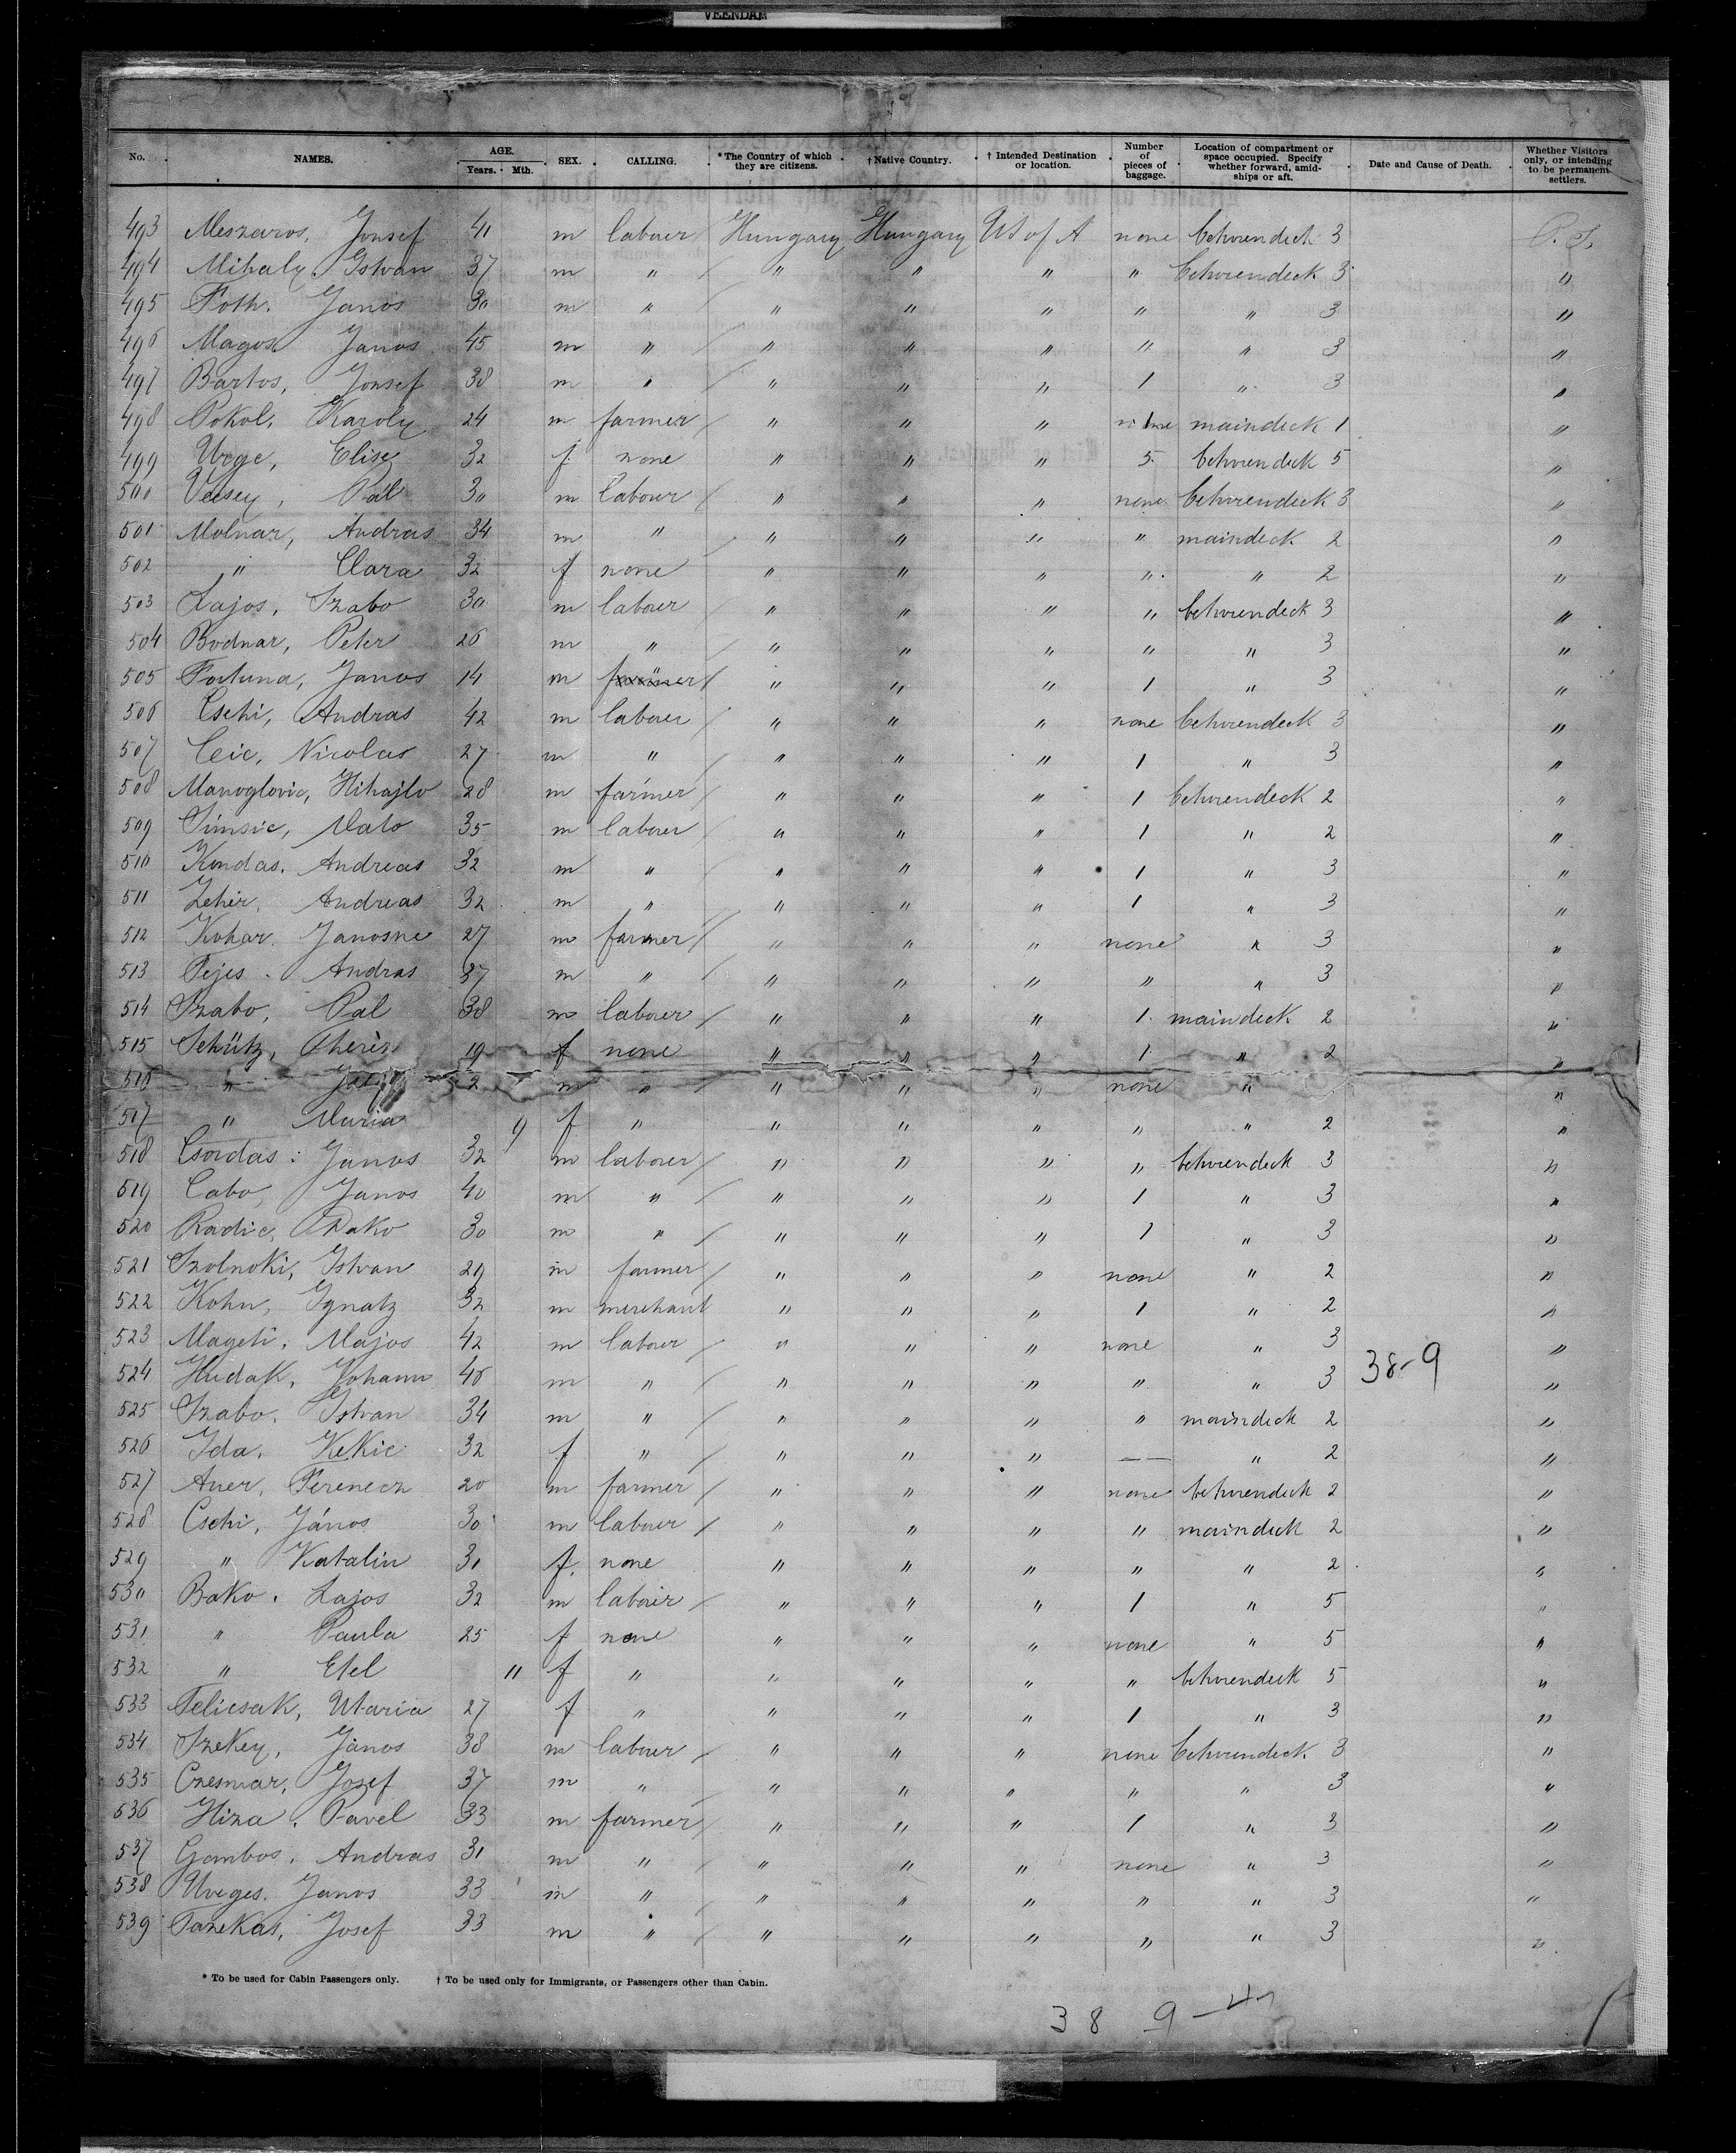 VEENDAM
No. NAMES. AGE. Years. Mth. SEX. CALLING. * The Country of which they are citizens. † Native Country. † Intended Destination or location. Number of pieces of baggage. Location of compartment or space occupied. Specify whether forward, amidships or aft. Date and Cause of Death. Whether Visitors only, or intending to be permanent settlers.
493 Meszaros, Jonsef 41 m labourer Hungary Hungary US of A none betweendeck 3
494 Mihaly, Istvan 37 m " " " " " betweendeck 3 "
495 Toth, Janos 30 m " " " " " " 3 "
496 Magos Janos 45 m " " " " " " 3 "
497 Bartos, Jonsef 38 m " " " " 1 " 3 "
498 Pokol, Karoly 24 m farmer " " " maindeck 1 "
499 Urge, Elise 32 f none " " " 5 betweendeck 5 "
500 Vecsey, Pal 30 m labour " " " none betweendeck 3 "
501 Molnar, Andras 34 m " " " " " maindeck 2 "
502 " Clara 32 f none " " " " " 2 "
503 Lajos, Szabo 30 m labour " " " " betweendeck 3 "
504 Bodnar, Peter 26 m " " " " " " 3 "
505 Fortuna, Janos 14 m farmer " " " 1 " 3 "
506 Csehi, Andras 42 m labour " " " none betweendeck 3 "
507 Ceic, Nicolas 27 m " " " " 1 " 3 "
508 Manoglovic, Mihajlo 28 m farmer " " " 1 betweendeck 2 "
509 Simsic, Mato 35 m labour " " " 1 " 2 "
510 Kundas, Andreas 32 m " " " " 1 " 3 "
511 Zehir, Andreas 32 m " " " " 1 " 3 "
512 Kohar Janosne 27 m farmer " " " none " 3 "
513 Fejes Andras 37 m " " " " " " 3 "
514 Szabo, Pal 38 m labour " " " 1 maindeck 2 "
515 Schütz, Therez 19 f none " " " 1 " 2 "
516 " 2 m " " " " none " "
517 " Maria 9 f " " " " " " 2 "
518 Csordas, Janos 32 m labour " " " " betweendeck 3 "
519 Cabo, Janos 40 m " " " " 1 " 3 "
520 Radic, Rako 30 m " " " " 1 " 3 "
521 Szolnoki, Istvan 29 m farmer " " " none " 2 "
522 Kohn, Ignatz 32 m merchant " " " 1 " 2 "
523 Mageti, Majos 42 m labour " " " none " 3 "
524 Hudak, Johann 46 m " " " " " " 3 38-9 "
525 Szabo, Istvan 34 m " " " " " maindeck 2 "
526 Ida, Kekic 32 f " " " " — " 2 "
527 Auer, Ferencz 20 m farmer " " " none betweendeck 2 "
528 Csehi, János 30 m labour " " " " maindeck 2 "
529 " Katalin 31 f. none " " " " " 2 "
530 Bako, Lajos 32 m labour " " " 1 " 5 "
531 " Paula 25 f none " " " none " 5 "
532 " Etel 11 f " " " " " betweendeck 5 "
533 Felicsak, Maria 27 f " " " " 1 " 3 "
534 Szekey, János 38 m labour " " " none betweendeck 3 "
535 Czesmar, Jozef 37 m " " " " " " 3 "
536 Hiza, Pavel 33 m farmer " " " 1 " 3 "
537 Gombos, Andras 31 m " " " " none " 3 "
538 Uveges, Janos 33 m " " " " " " 3 "
539 Fazekas, Josef 33 m " " " " " " 3 "
* To be used for Cabin Passengers only. † To be used only for Immigrants, or Passengers other than Cabin.
38 9